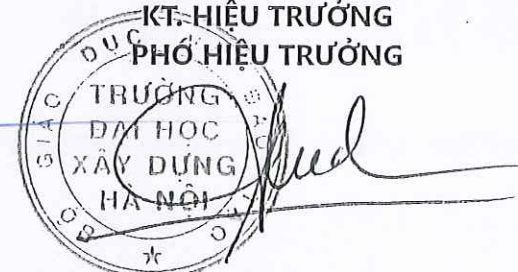 KT. HIỆU TRƯỞNG
PHÓ HIỆU TRƯỞNG
BỘ GIÁO DỤC VÀ ĐÀO TẠO
TRƯỜNG
ĐẠI HỌC
XÂY DỰNG
HÀ NỘI